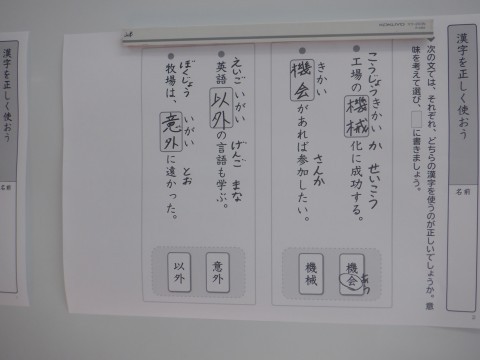 漢字を正しく使おう
名前
次の文では、それぞれ、どちらの漢字を使うのが正しいでしょうか。意
味を考えて選び、□に書きましょう。
こうじょう きかい か せいこう
工場の機械化に成功する。
きかい さんか
機会があれば参加したい。
機会
あう
機械
えいご いがい げんご まな
英語以外の言語も学ぶ。
ぼくじょう いがい とお
牧場は、意外に遠かった。
意外
以外
漢字を正しく使おう
名前
KOKUYO